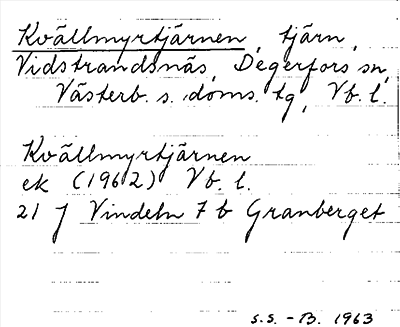 Kvällmyrtjärnen, tjärn,
Vidstrandsnäs, Degerfors sn,
Västerb. s. doms. tg, Vb. l.
Kvällmyrtjärnen
ek (1962) Vb. l.
21 J Vindeln 7 b Granberget
S.S. - B. 1963